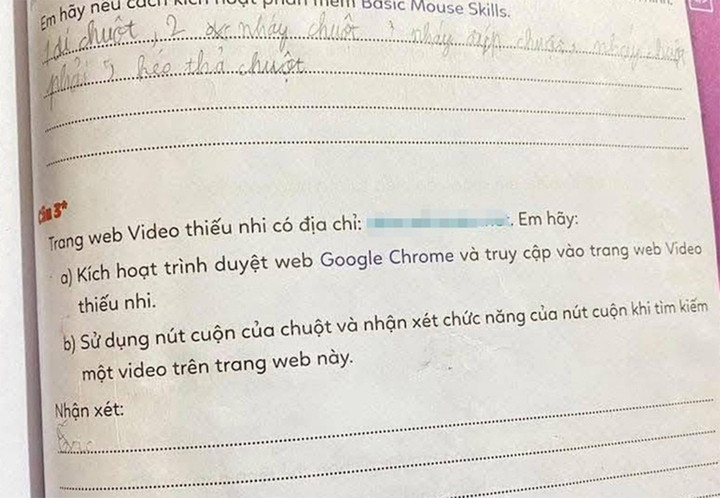 Em hãy nêu cách kích hoạt phần mềm Basic Mouse Skills.
1 di chuột, 2 nháy chuột 3 nháy chuột, nháy chuột
phải 5 kéo thả chuột
Câu 3*
Trang web Video thiếu nhi có địa chỉ: . Em hãy:
a) Kích hoạt trình duyệt web Google Chrome và truy cập vào trang web Video
thiếu nhi.
b) Sử dụng nút cuộn của chuột và nhận xét chức năng của nút cuộn khi tìm kiếm
một video trên trang web này.
Nhận xét: